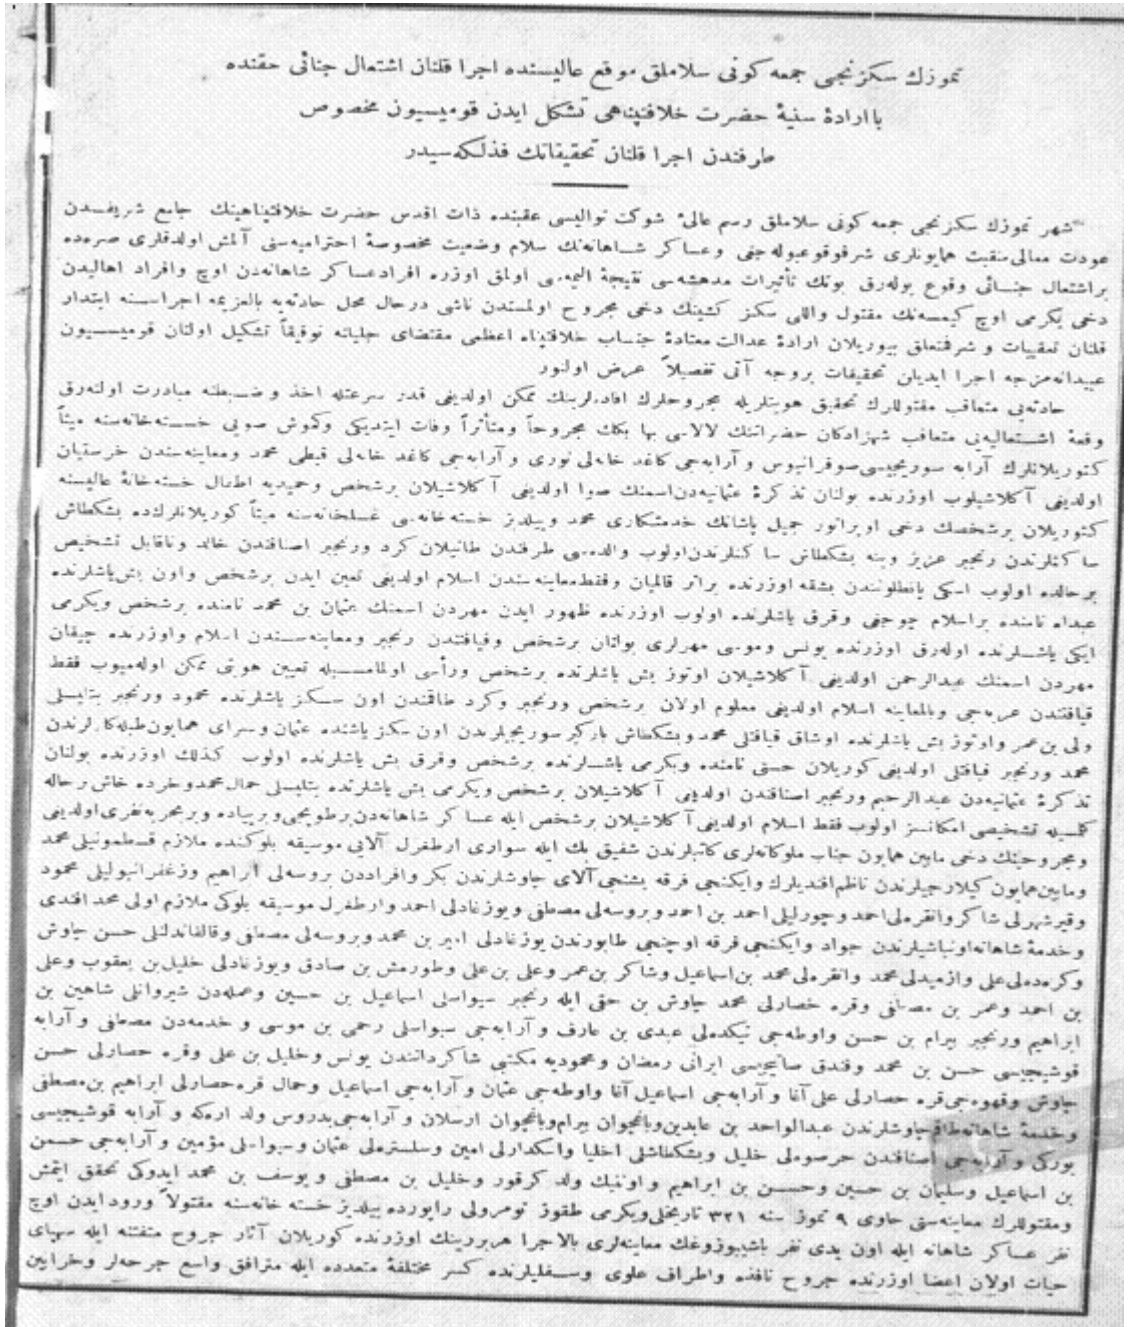 تموزك سكزنجی جمعه كونی سلاملق موقع عالیسنده اجرا قلنان اشتعال جنائی حقنده
با ارادهٔ سنیهٔ حضرت خلافتپناهی تشكل ایدن قومیسیون مخصوص
طرفندن اجرا قلنان تحقیقاتك فذلكه‌سیدر
شهر تموزك سكزنجی جمعه كونی سلاملق رسم عالیٔ شوكت توالیسی عقبنده ذات اقدس حضرت خلافتپناهینك جامع شریفدن
عودت معالی‌منقبت همایونلری شرفوقوعبوله‌جغی و عساكر شاهانه‌نك سلام وضعیت مخصوصهٔ احترامیه‌سنی آلمش اولدقلری صره‌ده
براشتعال جنائی وقوع بوله‌رق بونك تأثیرات مدهشه‌سی نتیجهٔ الیمه‌سی اولمق اوزره افراد عساكر شاهانه‌دن اوچ وافراد اهالیدن
دخی یكرمی اوچ كیمسه‌نك مقتول واللی سكز كشینك دخی مجروح اولمسندن ناشی درحال محل حادثه‌یه بالعزیمه اجراسنه ابتدار
قلنان تعقیبات و شرفتعلق بیوریلان ارادهٔ عدالت معتادهٔ جناب خلافتپناه اعظمی مقتضای جلیانه توفیقاً تشكیل اولنان قومیسیون
عبیدانه‌مزجه اجرا ایدیلن تحقیقات بروجه آتی تفصیلاً عرض اولنور
حادثه‌یی متعاقب مقتوللرك تحقیق هویتلریله مجروحلرك افاده‌لرینك ممكن اولدیغی قدر سرعتله اخذ و ضبطنه مبادرت اولنه‌رق
وقعهٔ اشتعالیه‌یی متعاقب شهزادكان حضراتنك لالاسی بها بكك مجروحاً ومتأثراً وفات ایتدیكی وكموش صویی خسته‌خانه‌سنه میتاً
كتوریلانلرك آرابه سوریجیسی صوفرانیوس و آرابه‌جی كاغد خانه‌لی نوری و آرابه‌جی كاغد خانه‌لی قبطی محمد ومعاینه‌سندن خرستیان
اولدیغی آكلاشیلوب اوزرنده بولنان تذكرهٔ عثمانیه‌دن اسمنك صوا اولدیغی آكلاشیلان برشخص وحمیدیه اطفال خسته‌خانهٔ عالیسنه
كتوریلان برشخصك دخی اوپراتور جمیل پاشانك خدمتكاری محمد ویلدیز خسته‌خانه‌سی غسلخانه‌سنه میتاً كوریلانلرك‌ده بشكطاش
ساكنلرندن رنجبر عزیز وینه بشكطاش ساكنلرندن اولوب والده‌سی طرفندن طانیلان كرد ورنجبر اصنافندن خالد وناقابل تشخیص
برحالده اولوب اسكی پانطلونندن بشقه اوزرنده براثر قالمیان وفقط معاینه‌سندن اسلام اولدیغی تعین ایدن برشخص واون بش یاشلرنده
عبدالله نامنده براسلام چوجغی وقرق یاشلرنده اولوب اوزرنده ظهور ایدن مهردن اسمنك عثمان بن محمد نامنده برشخص ویكرمی
ایكی یاشلرنده اوله‌رق اوزرنده یونس وموسی مهرلری بولنان برشخص وقیافتندن رنجبر ومعاینه‌سندن اسلام واوزرنده چیقان
مهردن اسمنك عبدالرحمن اولدیغی آكلاشیلان اوتوز بش یاشلرنده برشخص ورأسی اولمامسیله تعیین هویتی ممكن اوله‌میوب فقط
قیافتندن عربه‌جی وبالمعاینه اسلام اولدیغی معلوم اولان برشخص ورنجبر وكرد طاقمندن اون سكز یاشلرنده محمود ورنجبر بتلیسلی
ولی بن عمر واوتوز بش یاشلرنده اوشاق قیافتلی محمد وبشكطاش باركیر سوریجیلرندن اون سكز یاشنده عثمان وسرای همایون طبله‌كارلرندن
محمد ورنجبر قیافتلی اولدیغی كوریلان حسن نامنده ویكرمی یاشلرنده برشخص وقرق بش یاشلرنده اولوب كذلك اوزرنده بولنان
تذكرهٔ عثمانیه‌دن عبدالرحیم ورنجبر اصنافندن اولدیغی آكلاشیلان برشخص ویكرمی بش یاشلرنده بتلیسلی حمال محمد وخرده خاش برحاله
كلمسیله تشخیصی امكانسز اولوب فقط اسلام اولدیغی آكلاشیلان برشخص ایله عساكر شاهانه‌دن برطوپجی وبرپیاده وبربحریه نفری اولدیغی
ومجروحینك دخی مابین همایون جناب ملوكانه‌لری كاتبلرندن شفیق بك ایله سواری ارطغرل آلایی موسیقه بلوكنده ملازم قسطمونیلی محمد
ومابین همایون كیلارجیلرندن ناظم افندیلرك وایكنجی فرقه بشنجی آلای چاوشلرندن بكر وافراددن بروسه‌لی ابراهیم وزعفرانبولیلی محمود
وقیرشهرلی شاكر وانقره‌لی احمد وچورلیلی احمد بن احمد وبروسه‌لی مصطفی وبوزغادلی احمد وارطغرل موسیقه بلوكی ملازم اولی محمد افندی
وخدمهٔ شاهانه اونباشیلرندن جواد وایكنجی فرقه اوچنجی طابورندن یوزغادلی امیر بن محمد وبروسه‌لی مصطفی وقالفاندلنلی حسن چاوش
وكرده‌لی علی وازمیدلی محمد وانقره‌لی محمد بن اسماعیل وشاكر بن عمر وعلی بن علی وطورمش بن صادق ویوزغادلی خلیل بن یعقوب وعلی
بن احمد وعمر بن مصطفی وقره حصارلی محمد چاوش بن حقی ایله رنجبر سیواسلی اسماعیل بن حسین وعمله‌دن شیروانلی شاهین بن
ابراهیم ورنجبر بیرام بن حسن واوطه‌جی نیكده‌لی عبدی بن عارف و آرابه‌جی سیواسلی رحمی بن موسی و خدمه‌دن مصطفی و آرابه
قوشیجیسی حسن بن محمد وفندق صاتیجیسی ایرانی رمضان ومحمودیه مكتبی شاكردانندن یونس وخلیل بن علی وقره حصارلی حسن
چاوش وقهوه‌جی قره حصارلی علی آغا و آرابه‌جی اسماعیل آغا واوطه‌جی عثمان و آرابه‌جی اسماعیل وحمال قره‌حصارلی ابراهیم بن مصطفی
وخدمهٔ شاهانه چاوشلرندن عبدالواحد بن عابدین وباغچوان بیرام وباغچوان ارسلان و آرابه‌جی بدروس ولد و آرابه قوشیجیسی
یوركی و آرابه‌جی اصنافندن خلیل وبشكطاشلی واسكدارلی امین وسلستره‌لی عثمان وسیواسلی مؤمین و آرابه‌جی حسن
بن اسماعیل وسلیمان بن حسین وحسن بن ابراهیم و اونیك ولد كرقور وخلیل بن مصطفی و یوسف بن محمد ایدوكی تحقق ایتمش
ومقتوللرك معاینه‌سنی حاوی ٩ تموز سنه ٣٢١ تاریخلی ویكرمی طقوز نومرولی راپورده ییلدیز خسته خانه‌سنه مقتولاً ورود ایدن اوچ
نفر عساكر شاهانه ایله اون یدی نفر باشیبوزوغك معاینه‌لری بالاجرا هربرینك اوزرنده كوریلان آثار جروح متفتته ایله سهپای
حیات اولان اعضا اوزرنده جروح نافذه واطراف علوی وسفلیلرنده كسر مختلفهٔ متعدده ایله مترافق واسع جرحه‌لر وخرابین